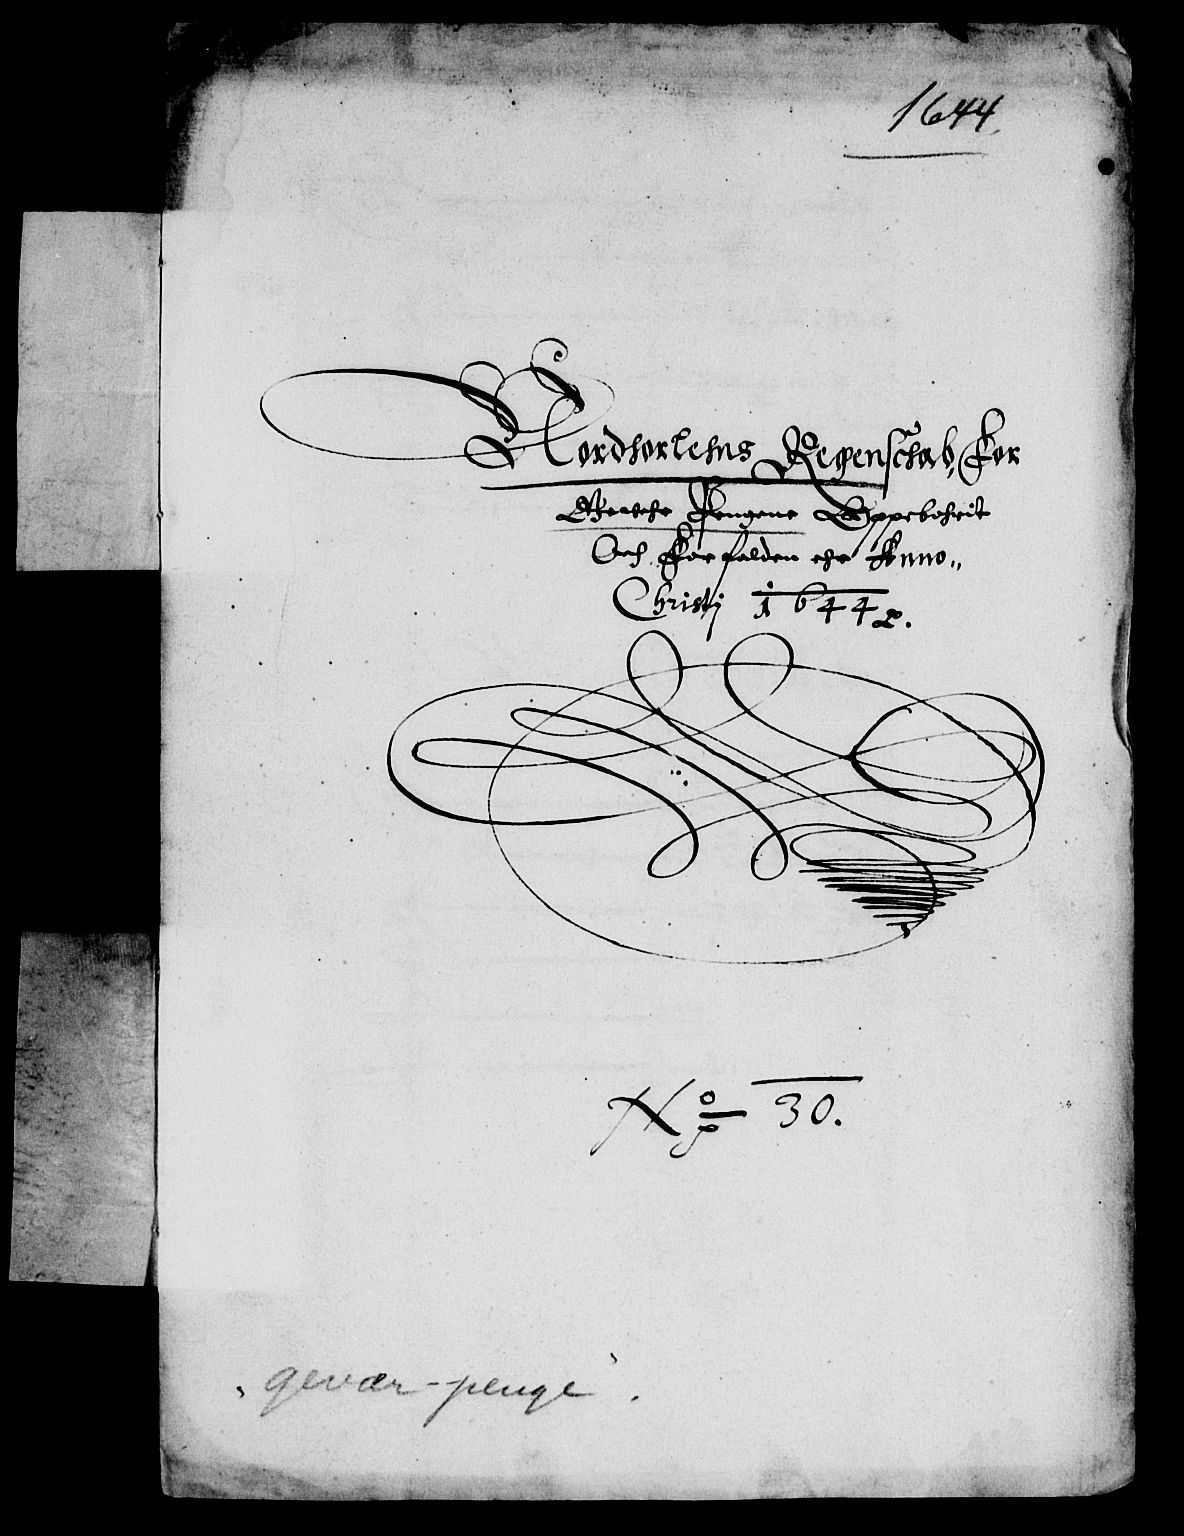 1644.
Nordhorlehns Regenschab, For
Penngene Oppeboherit
Och Forfalden ehr Anno„
Christj 1644
No 30.
"gevær-penge".